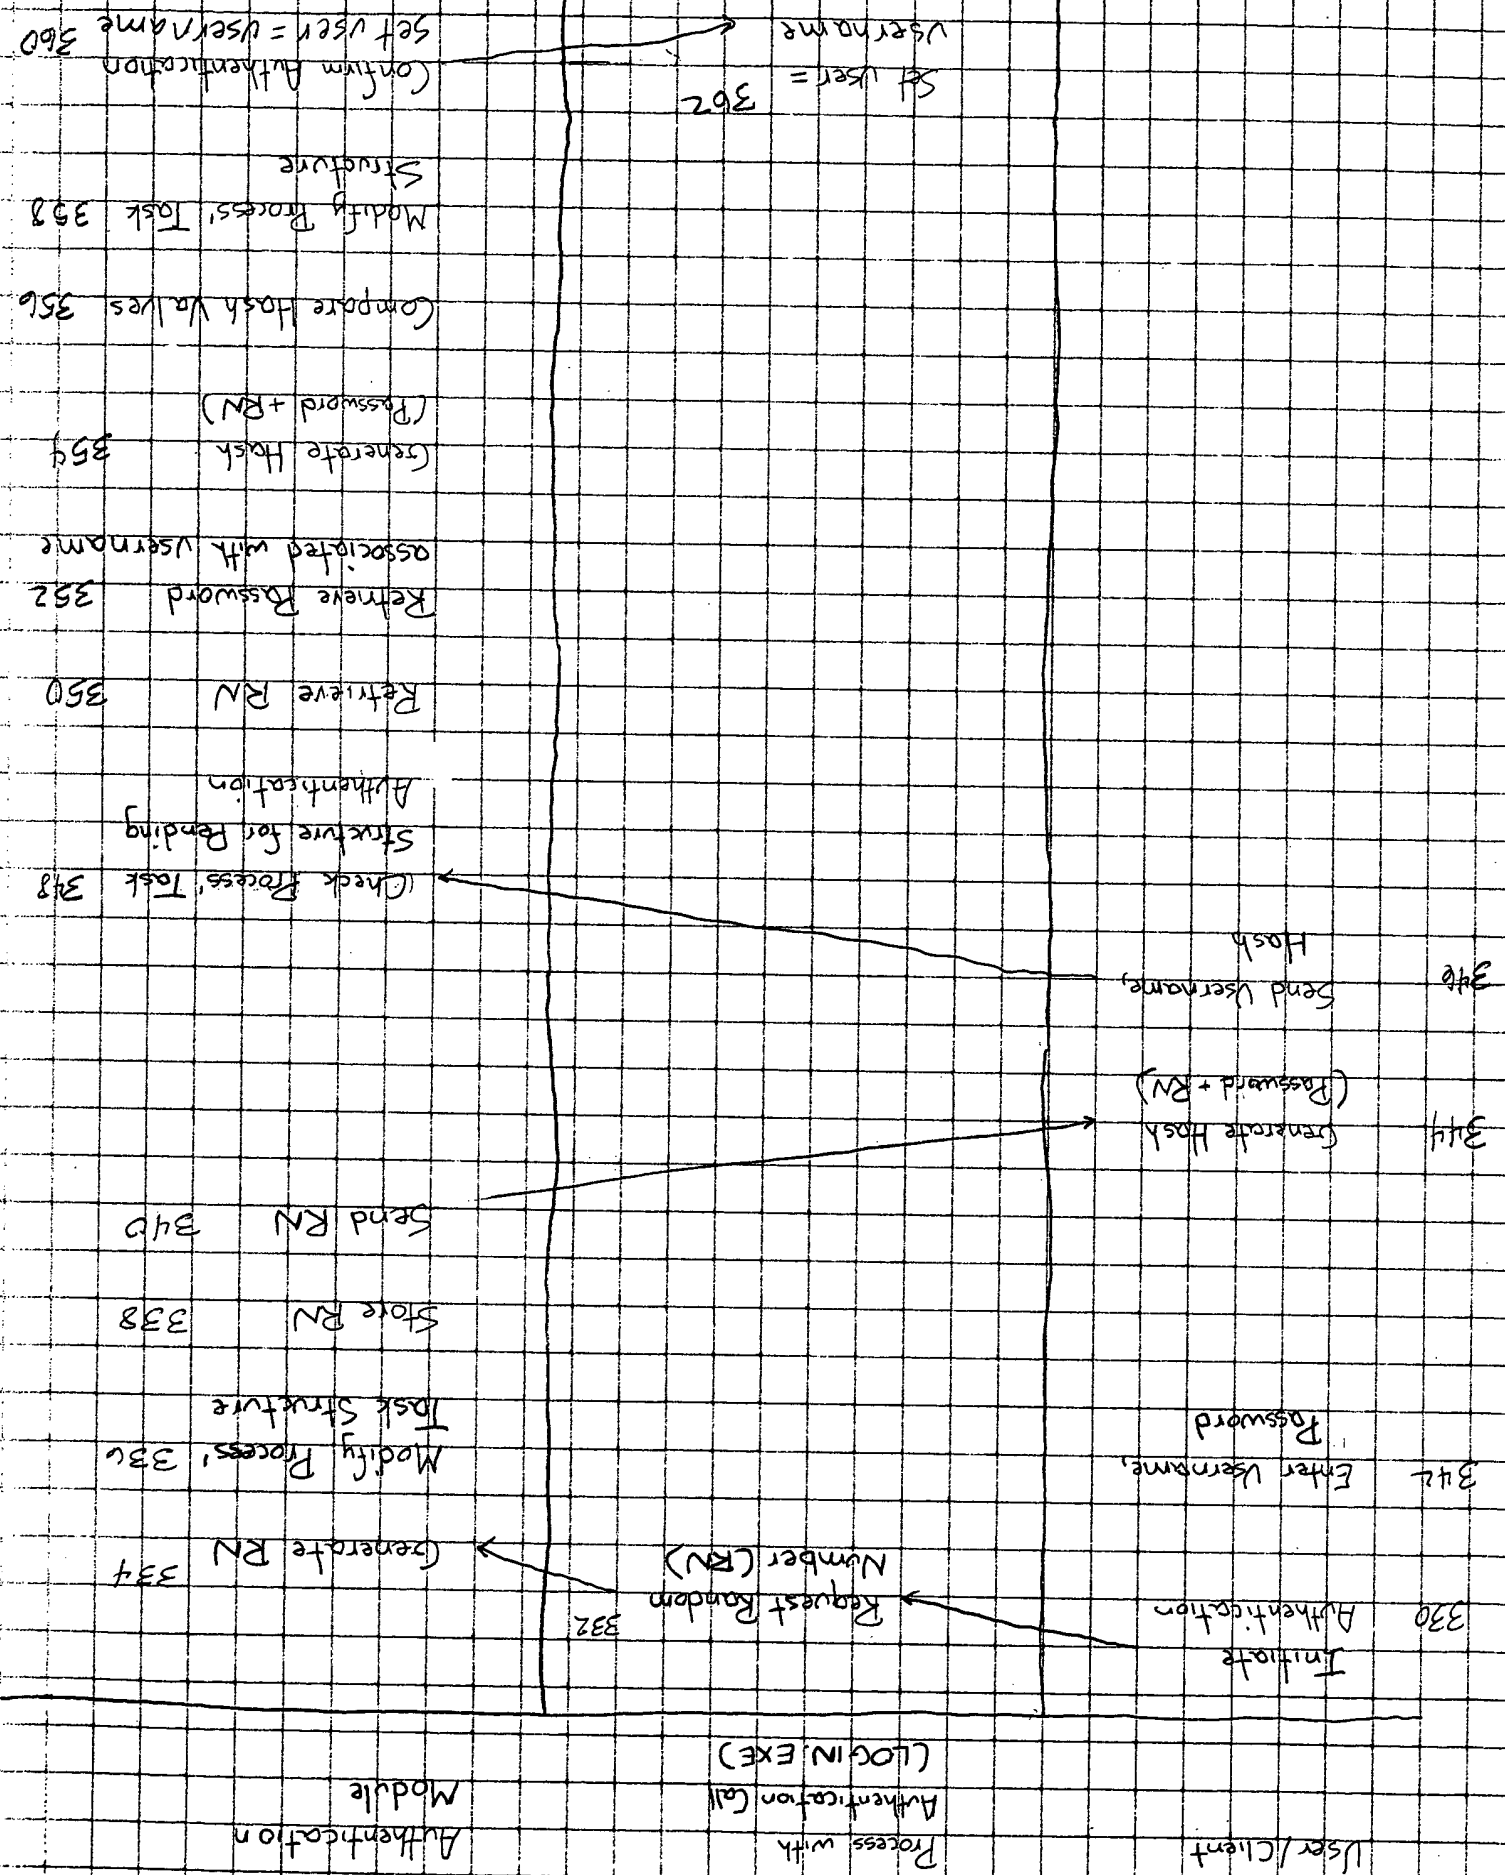 User/Client
Process with
Authentication Call
(LOGIN.EXE)
Authentication
Module
Initiate
330 Authentication
Request Random 332
Number (RN)
Generate RN 334
342 Enter Username,
Password
Modify Process' 336
Task Structure
Store RN 338
Send RN 340
344 Generate Hash
(Password + RN)
346 Send Username,
Hash
Check Process' Task 348
Structure for Pending
Authentication
Retrieve RN 350
Retrieve Password 352
associated with username
Generate Hash 354
(Password + RN)
Compare Hash Values 356
Modify Process' Task 358
Structure
Confirm Authentication
Set user = username 360
Set user = 362
username